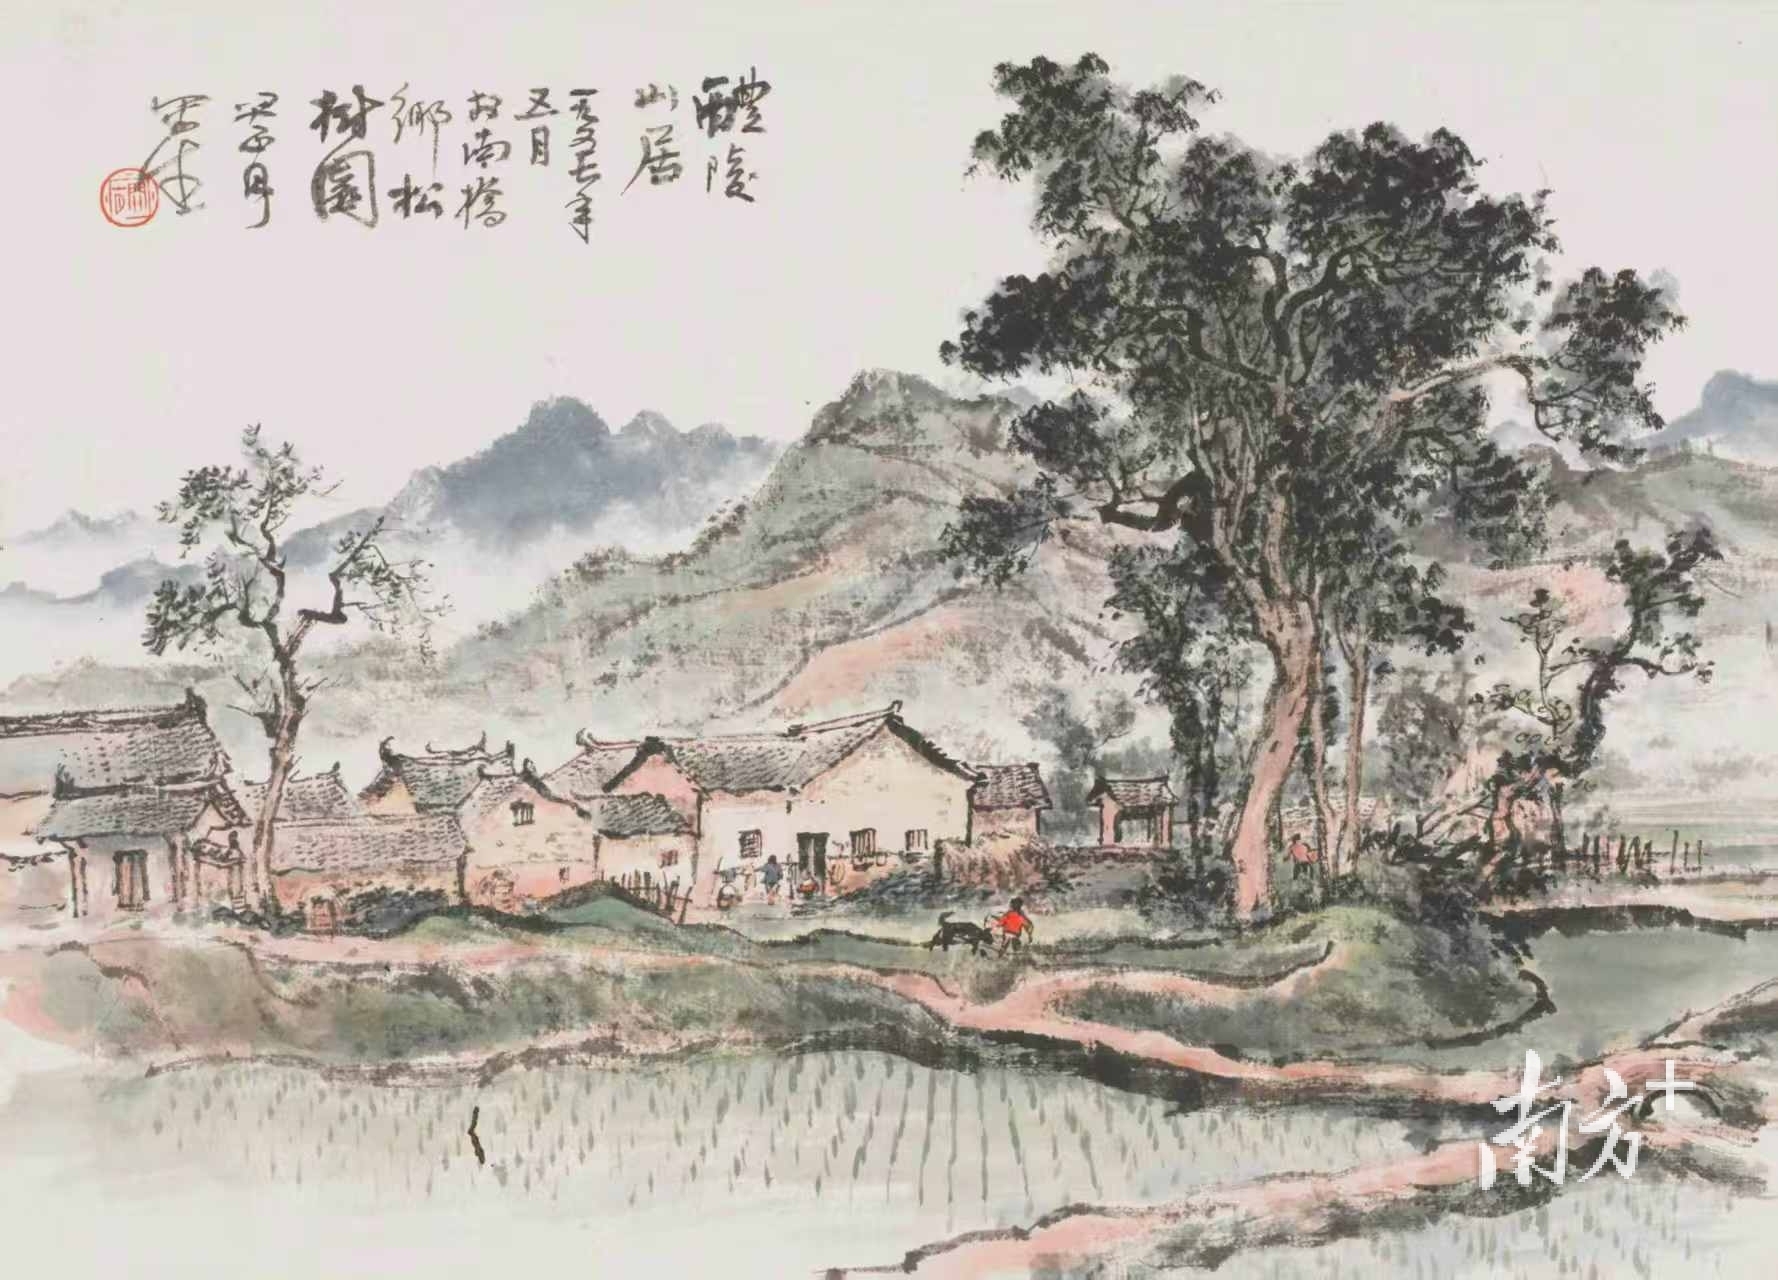 醴陵
山居
一九五七年
五月
於南橋
鄉松
樹園
關山月
寫生
南方+